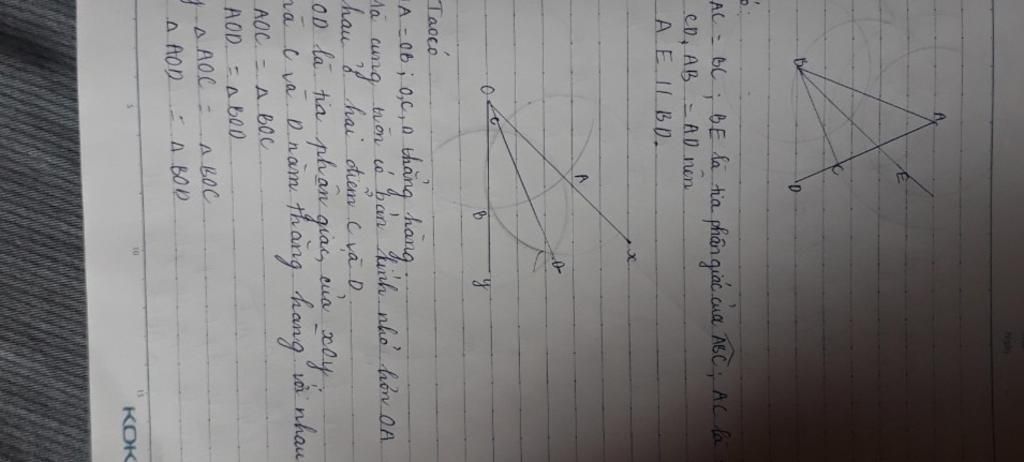 A
B
C
E
D
AC = BC ; BE là tia phân giác của ABC, AC là
CD, AB = AD nên
A E // BD.
O
A
x
B
y
Ta có
OA = OB ; O, C, D thẳng hàng
là cung tròn có bán kính nhỏ hơn OA
nhau ở hai điểm C và D.
OD là tia phân giác của xOy
mà C và D nằm thẳng hang với nhau
AOC = Δ BOC
AOD = Δ BOD
Δ AOC = Δ BOC
Δ AOD = Δ BOD
5
10
15
KOK